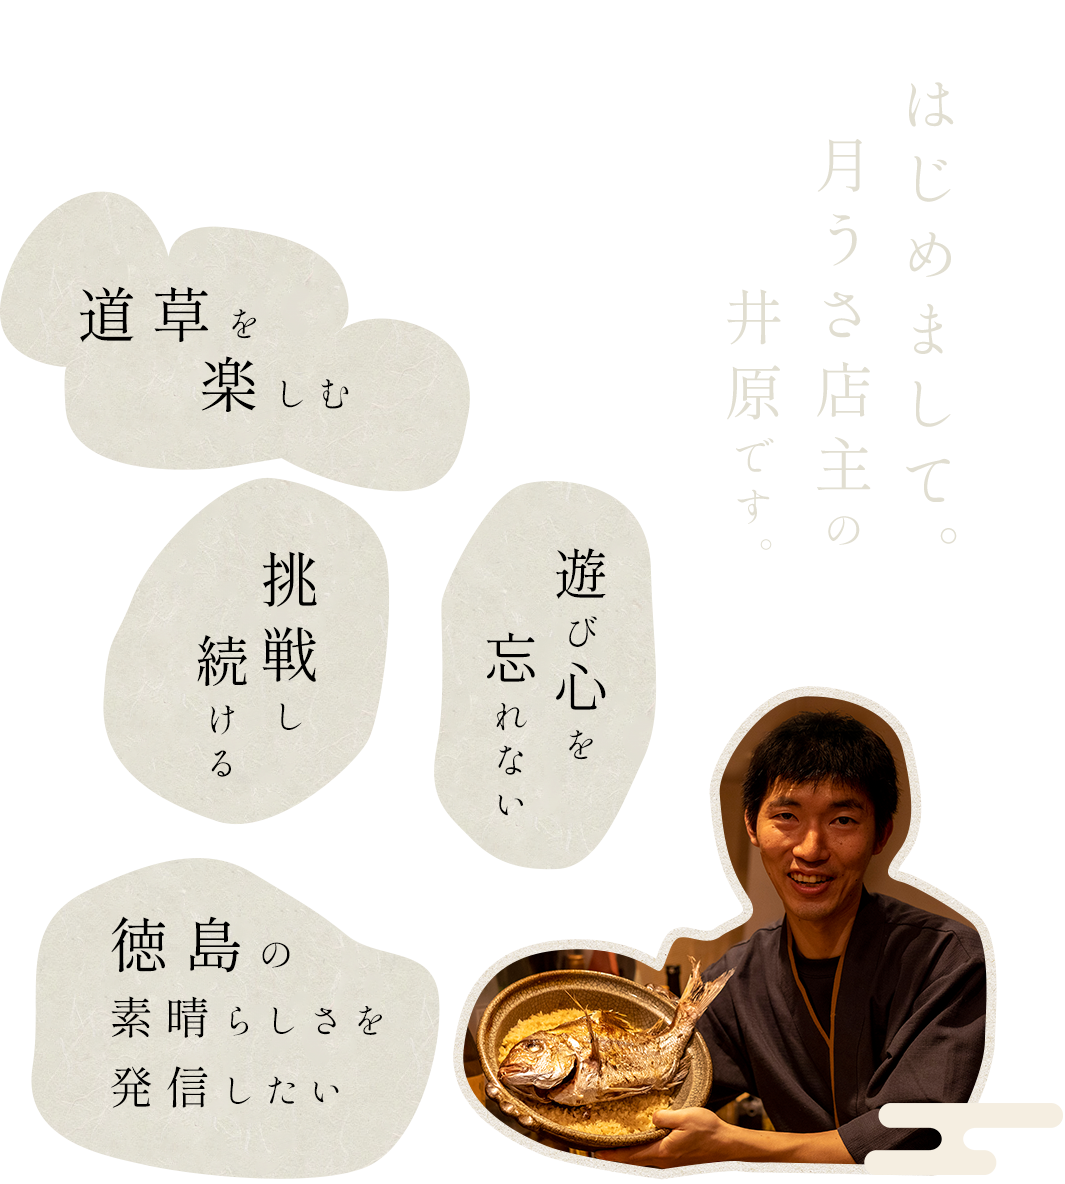 はじめまして。
月うさ店主の
井原です。
道草を
楽しむ
挑戦し
続ける
遊び心を
忘れない
徳島の
素晴らしさを
発信したい